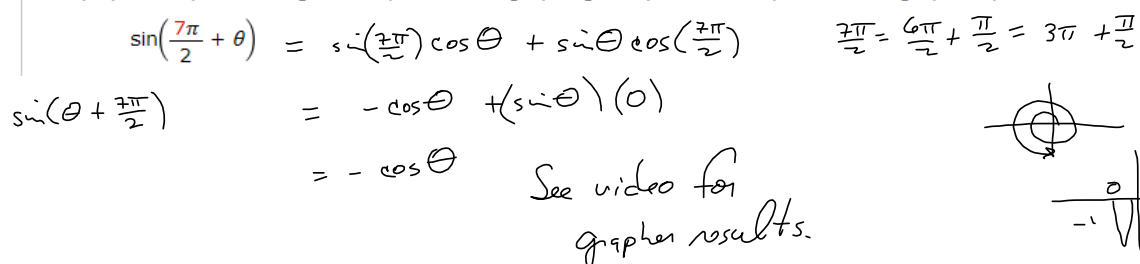 sin(7π/2 + θ) = sin(7π/2) cos θ + sin θ cos(7π/2)
7π/2 = 6π/2 + π/2 = 3π + π/2
sin(θ + 7π/2) = - cos θ + (sin θ)(0)
= - cos θ
See video for
grapher results.
0
-1